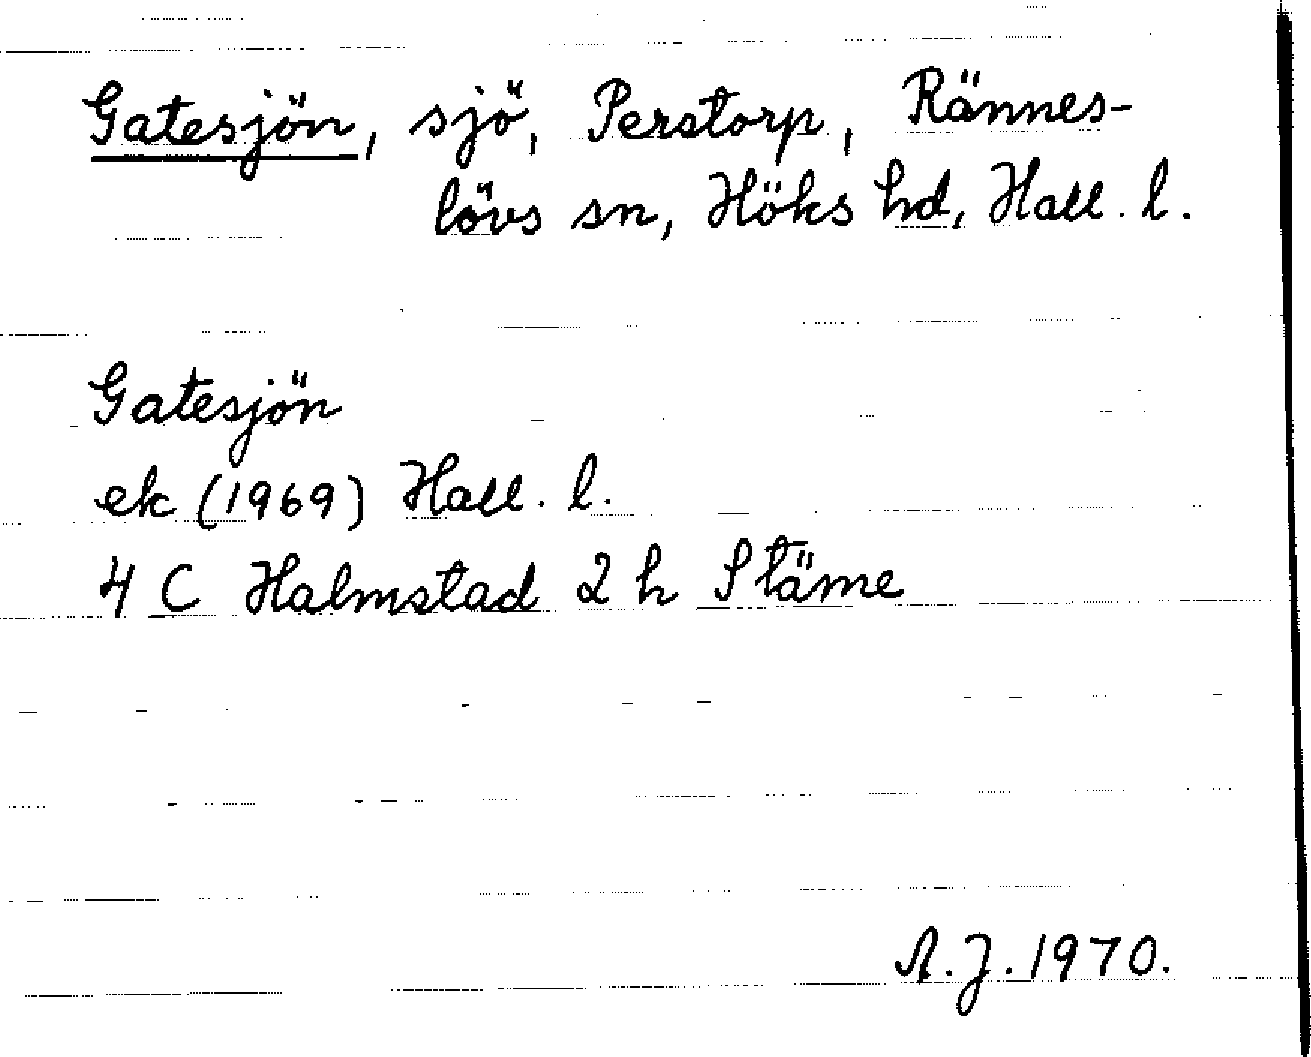 Gatesjön, sjö, Perstorp, Rännes-
lövs sn, Höks hd, Hall. l.
Gatesjön
ek (1969) Hall. l.
4 C Halmstad 2 h Stäme
A.J. 1970.